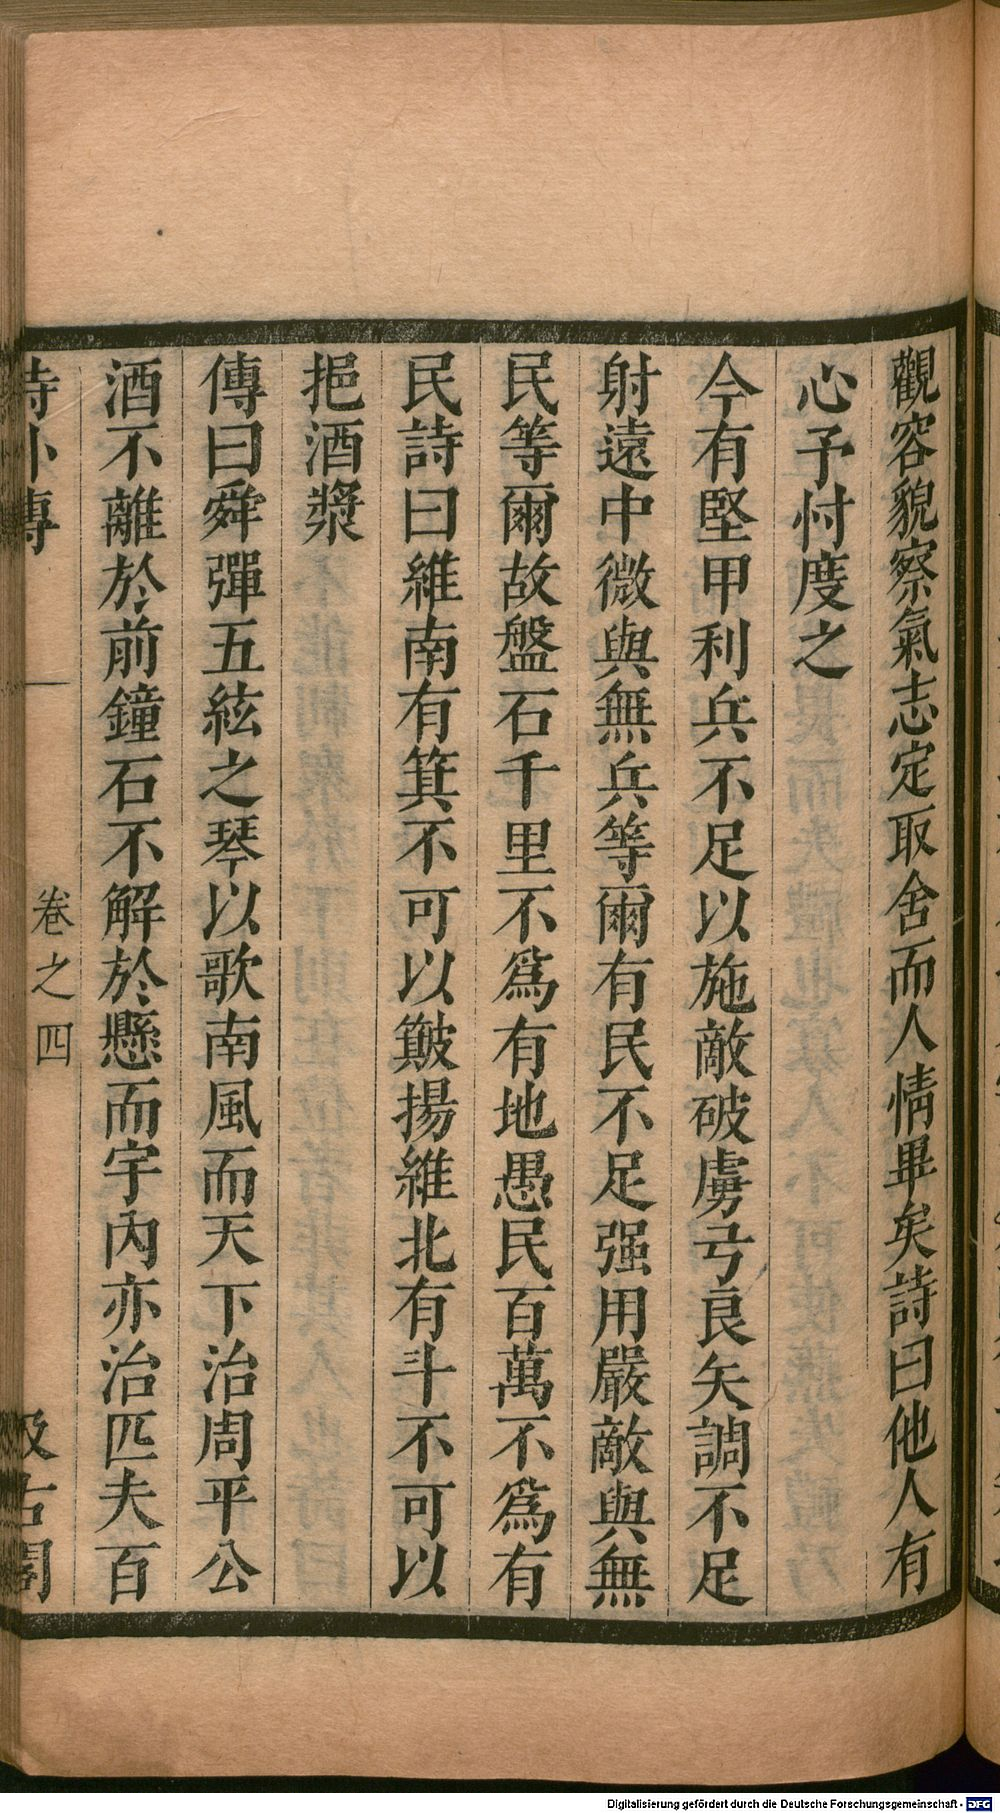 觀容貌察氣志定取舍而人情畢矣詩曰他人有
心予忖度之
今有堅甲利兵不足以施敵破虜弓良矢調不足
射遠中微與無兵等爾有民不足强用嚴敵與無
民等爾故盤石千里不爲有地愚民百萬不爲有
民詩曰維南有箕不可以簸揚維北有斗不可以
挹酒漿
傳曰舜彈五絃之琴以歌南風而天下治周平公
酒不離於前鐘石不解於懸而宇內亦治匹夫百
詩外傳 卷之四 汲古閣
Digitalisierung gefördert durch die Deutsche Forschungsgemeinschaft - DFG